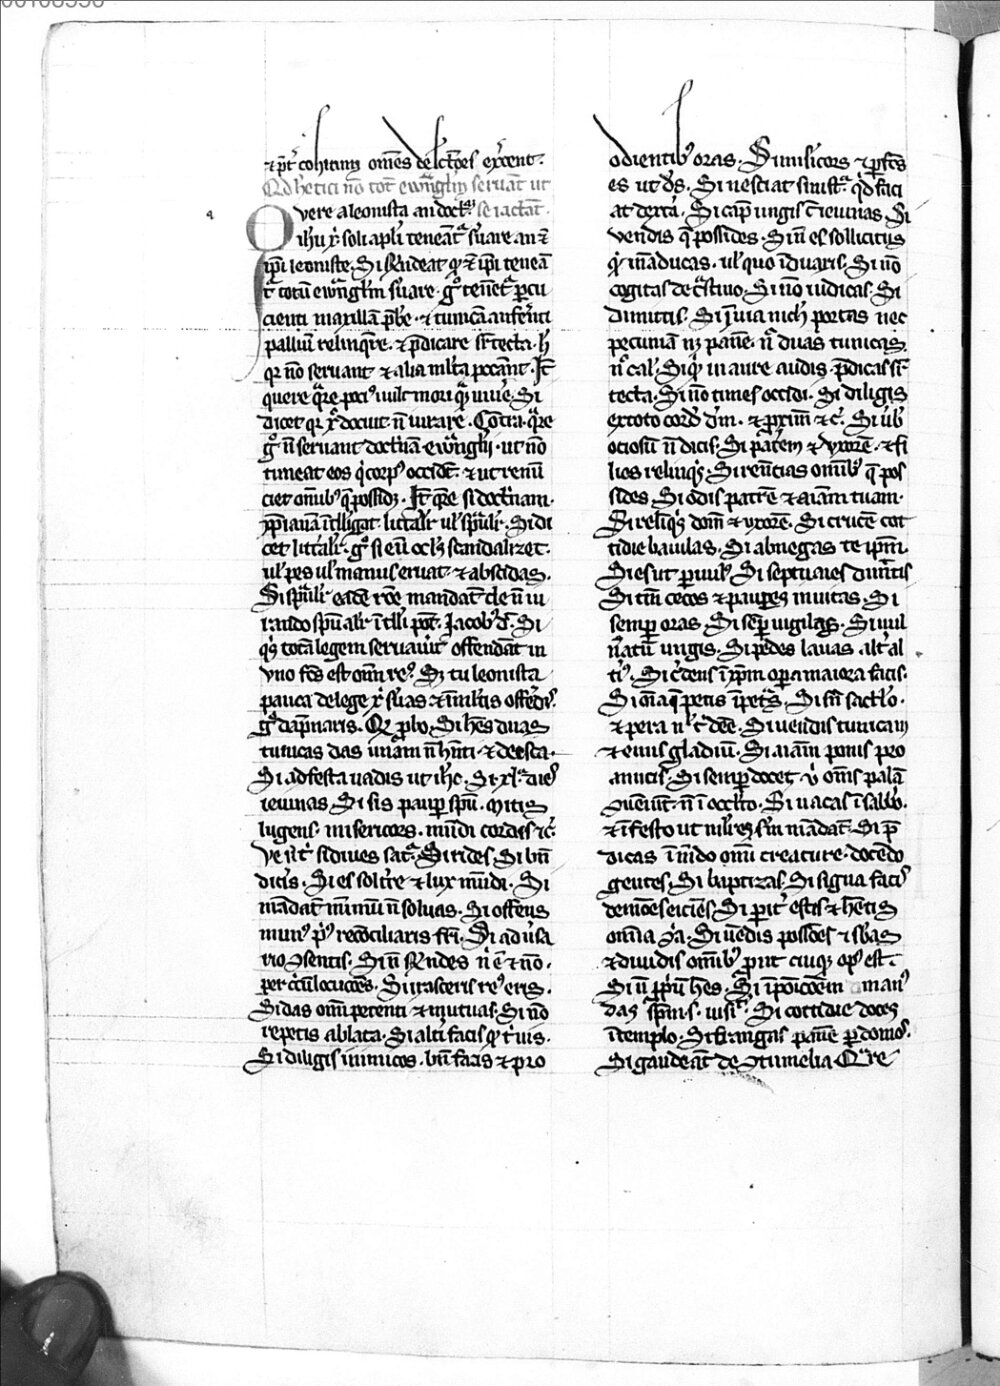 00108538
⁊ p̄t cohitiū om̄es delectōes exc̄ent.
Qd heretici nō totū ewāgliū seruāt ut
Quere a leonista an doct᷑ se iactāt.
ihu xp̄i soli apl̄i teneāt᷑ s̄uare an ⁊
ip̄i leoniste. Si r̄ndeat qᷓ ⁊ ip̄i teneā
t᷑ totū ewāgliū s̄uare. gᵒ tenet᷑ p̄cu
cienti maxillā p̄be. ⁊ tunicā auferēti
palliū relinq̄re. ⁊ p̄dicare sr̄ tecta. h̄
qr nō seruant ⁊ alia mlt̄a peccāt. Jt̄
quere qᷓre poci᷒ uult mori qᷓ uiue. Si
dicet qr xp̄c docuit n̄ iurare. Contra. qᷓre
gᵒ n̄ seruant doctⁱnā ewāglii. ut nō
timeāt eos qⁱ corp᷒ occidūt. ⁊ ut renū
ciet om̄ib᷒ q̄ possidꝫ. Jt̄ qᷓre si doctⁱnam
xp̄ianā ītelligat litt̄alit᷑ ul̓ sp̄ualit᷑. Si di
cet litt̄alit᷑. gᵒ si eū ocl̓s scandalizet.
ul̓ pes ul̓ manus eruat ⁊ abscidas.
Si sp̄ualit᷑ eadē rōe mandatū de n̄ iu
rando sp̄ualit᷑ ītelli pōt. Jacob᷒ d̄. Si
qⁱs totā legem seruauit᷑ offendāt in
vno fc̄s est om̄ re᷒. Sꝫ tu leonista
pauca de lege xp̄i s̄uas ⁊ ī ml̓tis offēdis.
gᵒ dāpnaris. Qᵈ p̄bo. Si hēs duas
tunicas das unam n̄ hn̄ti. ⁊ de esca.
Si ad festa uadis ut ihc. Si xl. dieb᷒
ieiunas. Si sis paup̄ sp̄u. mitis
lugens. misericors. mūdi cordis ⁊c̄.
Ve ul̓ t᷑ si diues sat᷑. Si rides. Si bn̄
dic̄is. Si es sol t̄re ⁊ lux mūdi. Si
mādatū minimū n̄ soluas. Si offens
mun᷒ p᷒ recōciliaris fr̄i. Si aduⁱsa
rio ꝯsentis. Si n̄ r̄ndes n̄ ē ⁊ nō.
per circūlocucōes. Si irasceris re᷒ eris.
Si das om̄i petenti ⁊ mutuas. Si nō
repetis ablata. Si alt̄i facis qᷓ t᷑ uis.
Si diligis inimicos. bn̄ facis ⁊ pro
odientib᷒ oras. Si misericors ⁊ p̄fc̄s
es ut d̄s. Si nesciat sinistᷓ qⁱd faci
at dextᷓ. Si cap̄ ungis cū ieiunas. Si
vendis q̄ possides. Si n̄ es sollicitus
qⁱd māducas. ul̓ quo īduaris. Si nō
cogitas de c̄stino. Si nō iudicas. Si
dimittis. Si ī uia nich̓ portas nec
pecuniā nꝫ panē. n̄ duas tunicas.
n̄ cal᷑. Si qᵈ in aure audis. p̄dicas sr̄
tecta. Si nō times occidi. Si diligis
ex toto corde dm̄. ⁊ p̄ximū ⁊c̄. Si ūb
ociosū n̄ dicis. Si patrem ⁊ vxorē. ⁊ fi
lios relinqⁱs. Si renūtias om̄ib᷒ q̄ pos
sides. Si odis patrē ⁊ aīam tuam.
Si relinqⁱs domū ⁊ vxorē. Si crucē cot
tidie baiulas. Si abnegas te ip̄m.
Si es ut p̄uul᷒. Si septuaies dimittis
Si tm̄ cecos ⁊ paup̄es inuitas. Si
semp̄ oras. Si semp̄ uigilas. Si uul
nᷓatū ungis. Si pedes lauas alt̄ al
ti᷒. Si cⁱdens ī xp̄m opᷓ maiora facis.
Si oīa q̄ petis īpetᷓs. Si sn̄ sacc̄lo.
⁊ pera ul̓ cᵃ d̄ēe. Si uendis tunicam
⁊ emis gladiū. Si aīam ponis pro
amicis. Si semp̄ docet. u᷑ om̄s palā
ꝯueniūt. n̄ ī occl̓to. Si uacas ī sabb᷑o.
⁊ ī festo ut ml̓ieꝫ sm̄ mādatū. Si p̄
dicas ī mūdo om̄i creature. docēdo
gentes. Si baptizas. Si signa facis
demōes eiciēs. Si p̄it᷑ estis ⁊ hētis
omnia ꝯīa. Si uēdis possōes ⁊ sb̄as
⁊ diuidis om̄ib᷒ prout cuiqꝫ op᷒ est.
Si n̄ p̄priū hēs. Si īposicōem man᷒
das sp̄m s. uisit᷑. Si cottidie doces
ī templo. Si frangas panē p̄ domos.
Si gaudeāt de ꝯtumelia. Qᷓre